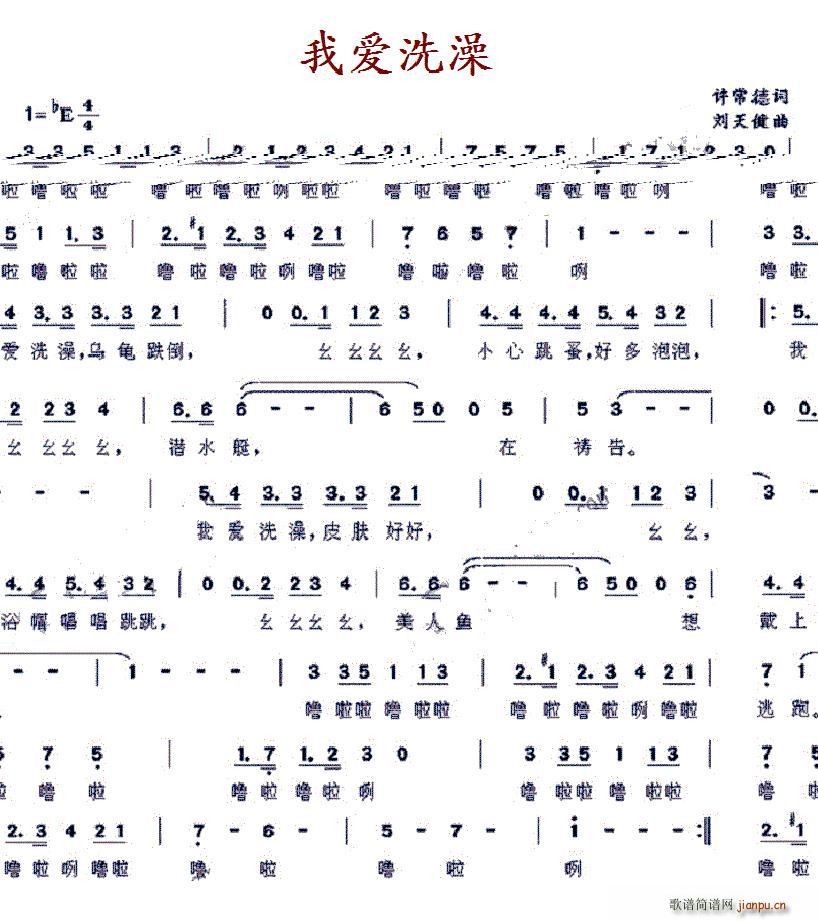 我爱洗澡
1=♭E 4/4
许常德词
刘天健曲
3 3 5 1 1 3 | 2 1 2 3 4 2 1 | 7 5 7 5 | 1 7 1 2 3 0 |
啦噜啦啦 噜啦噜啦咧啦啦 噜啦噜啦 噜啦噜啦咧 噜啦
5 1 1.3 | 2.#1 2.3 4 21 | 7 6 5 7 | 1 - - | 3 3.
啦噜啦啦 噜啦噜啦咧噜啦 噜啦噜啦 咧 噜啦
4 3.3 3.3 21 | 0 0.1 12 3 | 4.4 4.4 5.4 32 |: 5.
爱洗澡,乌龟跌倒, 幺幺幺幺, 小心跳蚤,好多泡泡, 我
2 23 4 | 6.6 6 - - | 6 50 0 5 | 5 3 - - | 0 0.
幺幺幺幺, 潜水艇, 在祷告。
- - | 5.4 3.3 3.3 21 | 0 0.1 12 3 | 3 -
我爱洗澡,皮肤好好, 幺幺,
4.4 5.4 32 | 0 0.2 23 4 | 6.6 6 - - | 6 50 0 6 | 4.4
浴帽唱唱跳跳, 幺幺幺幺, 美人鱼 想 戴上
- - | 1 - - - | 3 35 1 13 | 2.#1 2.3 4 21 | 7 1
噜啦啦噜啦啦 噜啦噜啦咧噜啦 逃跑。
5 7 5 | 1.7 1.2 3 0 | 3 35 1 13 | 7 5
啦噜啦 噜啦噜啦咧 噜啦啦噜啦啦 噜啦
2.3 4 21 | 7 - 6 - | 5 - 7 - | i - - - :| 2.#1
噜啦咧噜啦 噜 啦 噜 啦 咧 噜啦
歌谱简谱网 jianpu.cn